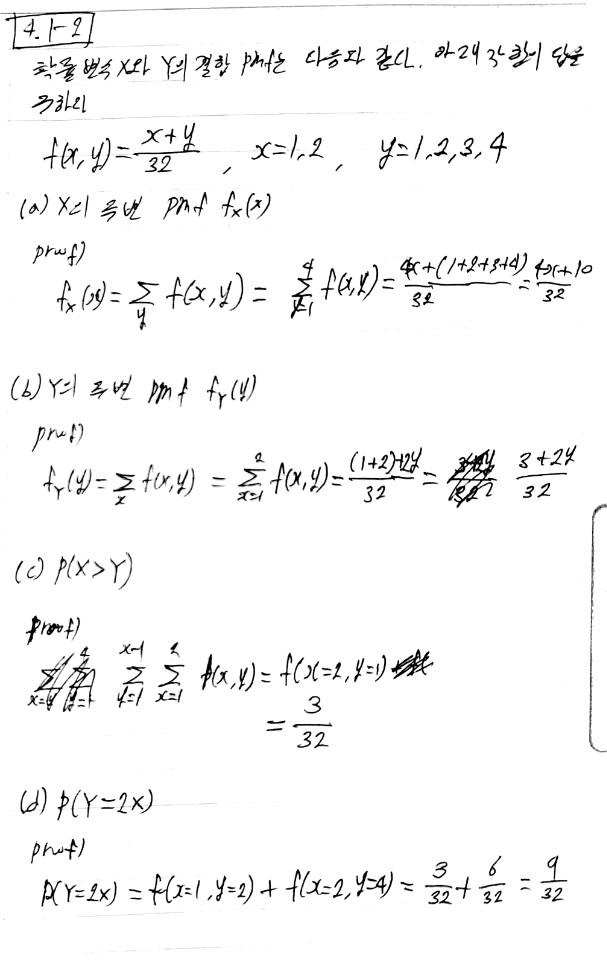 4.1-2
확률 변수 X와 Y의 결합 pmf는 다음과 같다. 아래 각 항의 답을
구하라
f(x,y) = x+y/32 , x=1,2 , y=1,2,3,4
(a) X의 주변 pmf fx(x)
proof)
fx(x) = Σ_y f(x,y) = Σ_{y=1}^{4} f(x,y) = 4x+(1+2+3+4)/32 = 4x+10/32
(b) Y의 주변 pmf fY(y)
proof)
fY(y) = Σ_x f(x,y) = Σ_{x=1}^{2} f(x,y) = (1+2)+2y/32 = 3+2y/32
(c) P(X>Y)
proof)
Σ_{y=1}^{x-1} Σ_{x=1}^{2} p(x,y) = f(x=2, y=1)
= 3/32
(d) P(Y=2X)
proof)
P(Y=2x) = f(x=1, y=2) + f(x=2, y=4) = 3/32 + 6/32 = 9/32